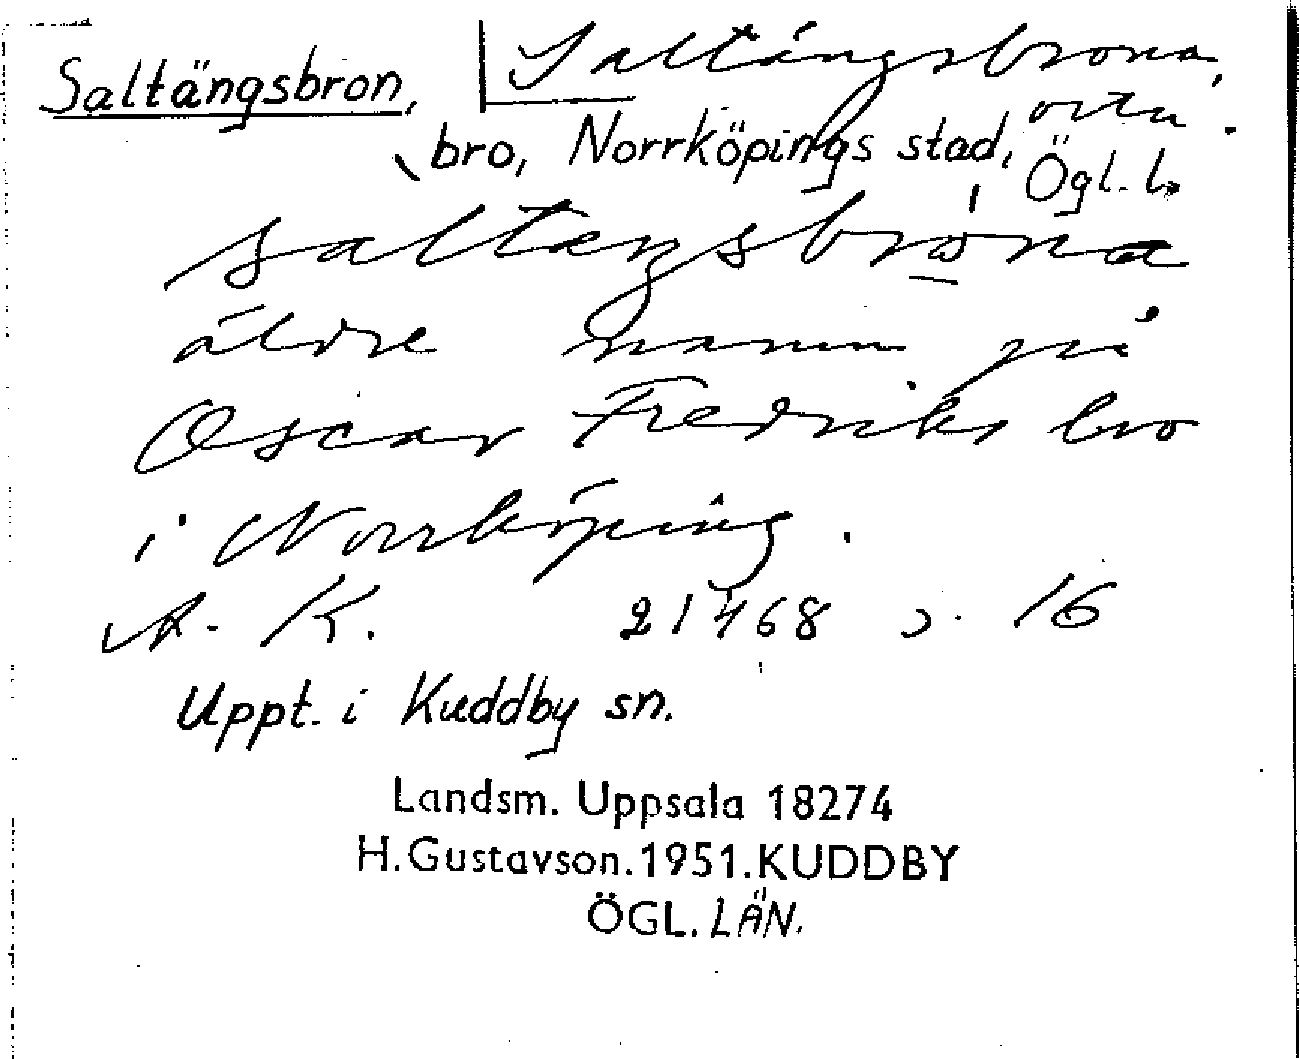 Saltängsbron, Saltängsbrona,
ortn.
bro, Norrköpings stad, Ögl. l.
saltengsbrona
äldre namn på
Oscar Fredriks bro
i Norrköping.
A. K. 21468 s. 16
Uppt. i Kuddby sn.
Landsm. Uppsala 18274
H. Gustavson. 1951. KUDDBY
ÖGL. LÄN.